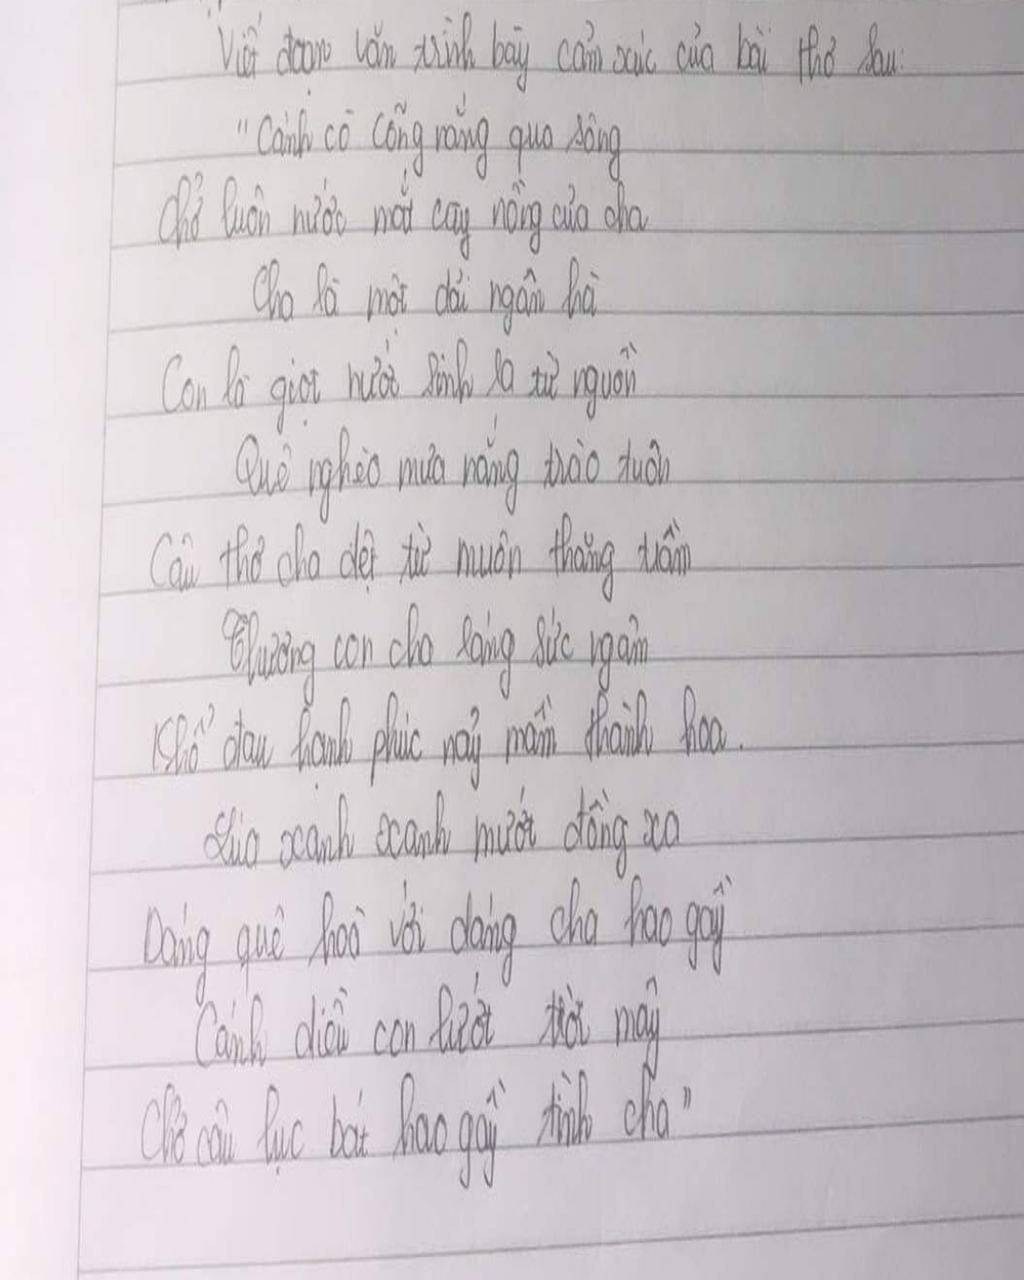 Viết đoạn văn trình bày cảm xúc của bài thơ sau:
"Cánh cò cõng nắng qua sông
Chở luôn nước mắt cay nồng của cha
Cha là một dải ngân hà
Con là giọt nước sinh ra từ nguồn
Quê nghèo mưa nắng trào tuôn
Câu thơ cha dệt từ muôn thăng trầm
Thương con cha ráng sức ngầm
Khổ đau hạnh phúc nảy mầm thành hoa.
Lúa xanh xanh mướt đồng xa
Dáng quê hoà với dáng cha hao gầy
Cánh diều con lướt trời mây
Chở câu lục bát hao gầy tình cha"